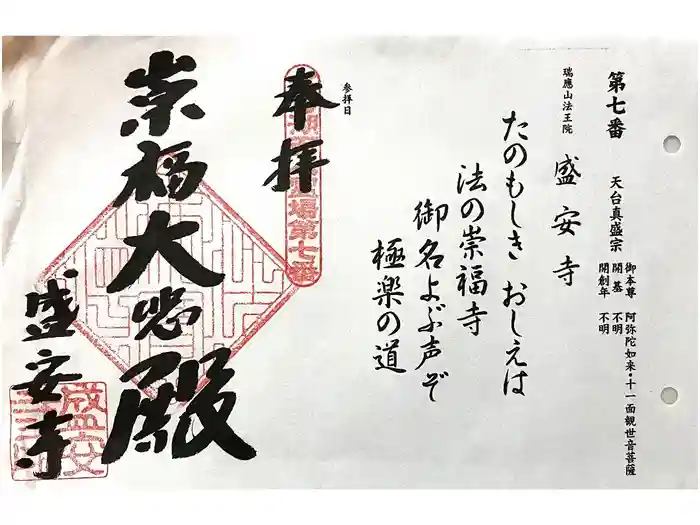 第七番
天台真盛宗
御本尊 阿弥陀如来・十一面観世音菩薩
開基 不明
開創年 不明
瑞應山法王院
盛安寺
たのもしき おしえは
法の崇福寺
御名よぶ声ぞ
極楽の道
参拝日
奉拝
場第七番
崇福大悲殿
盛安寺